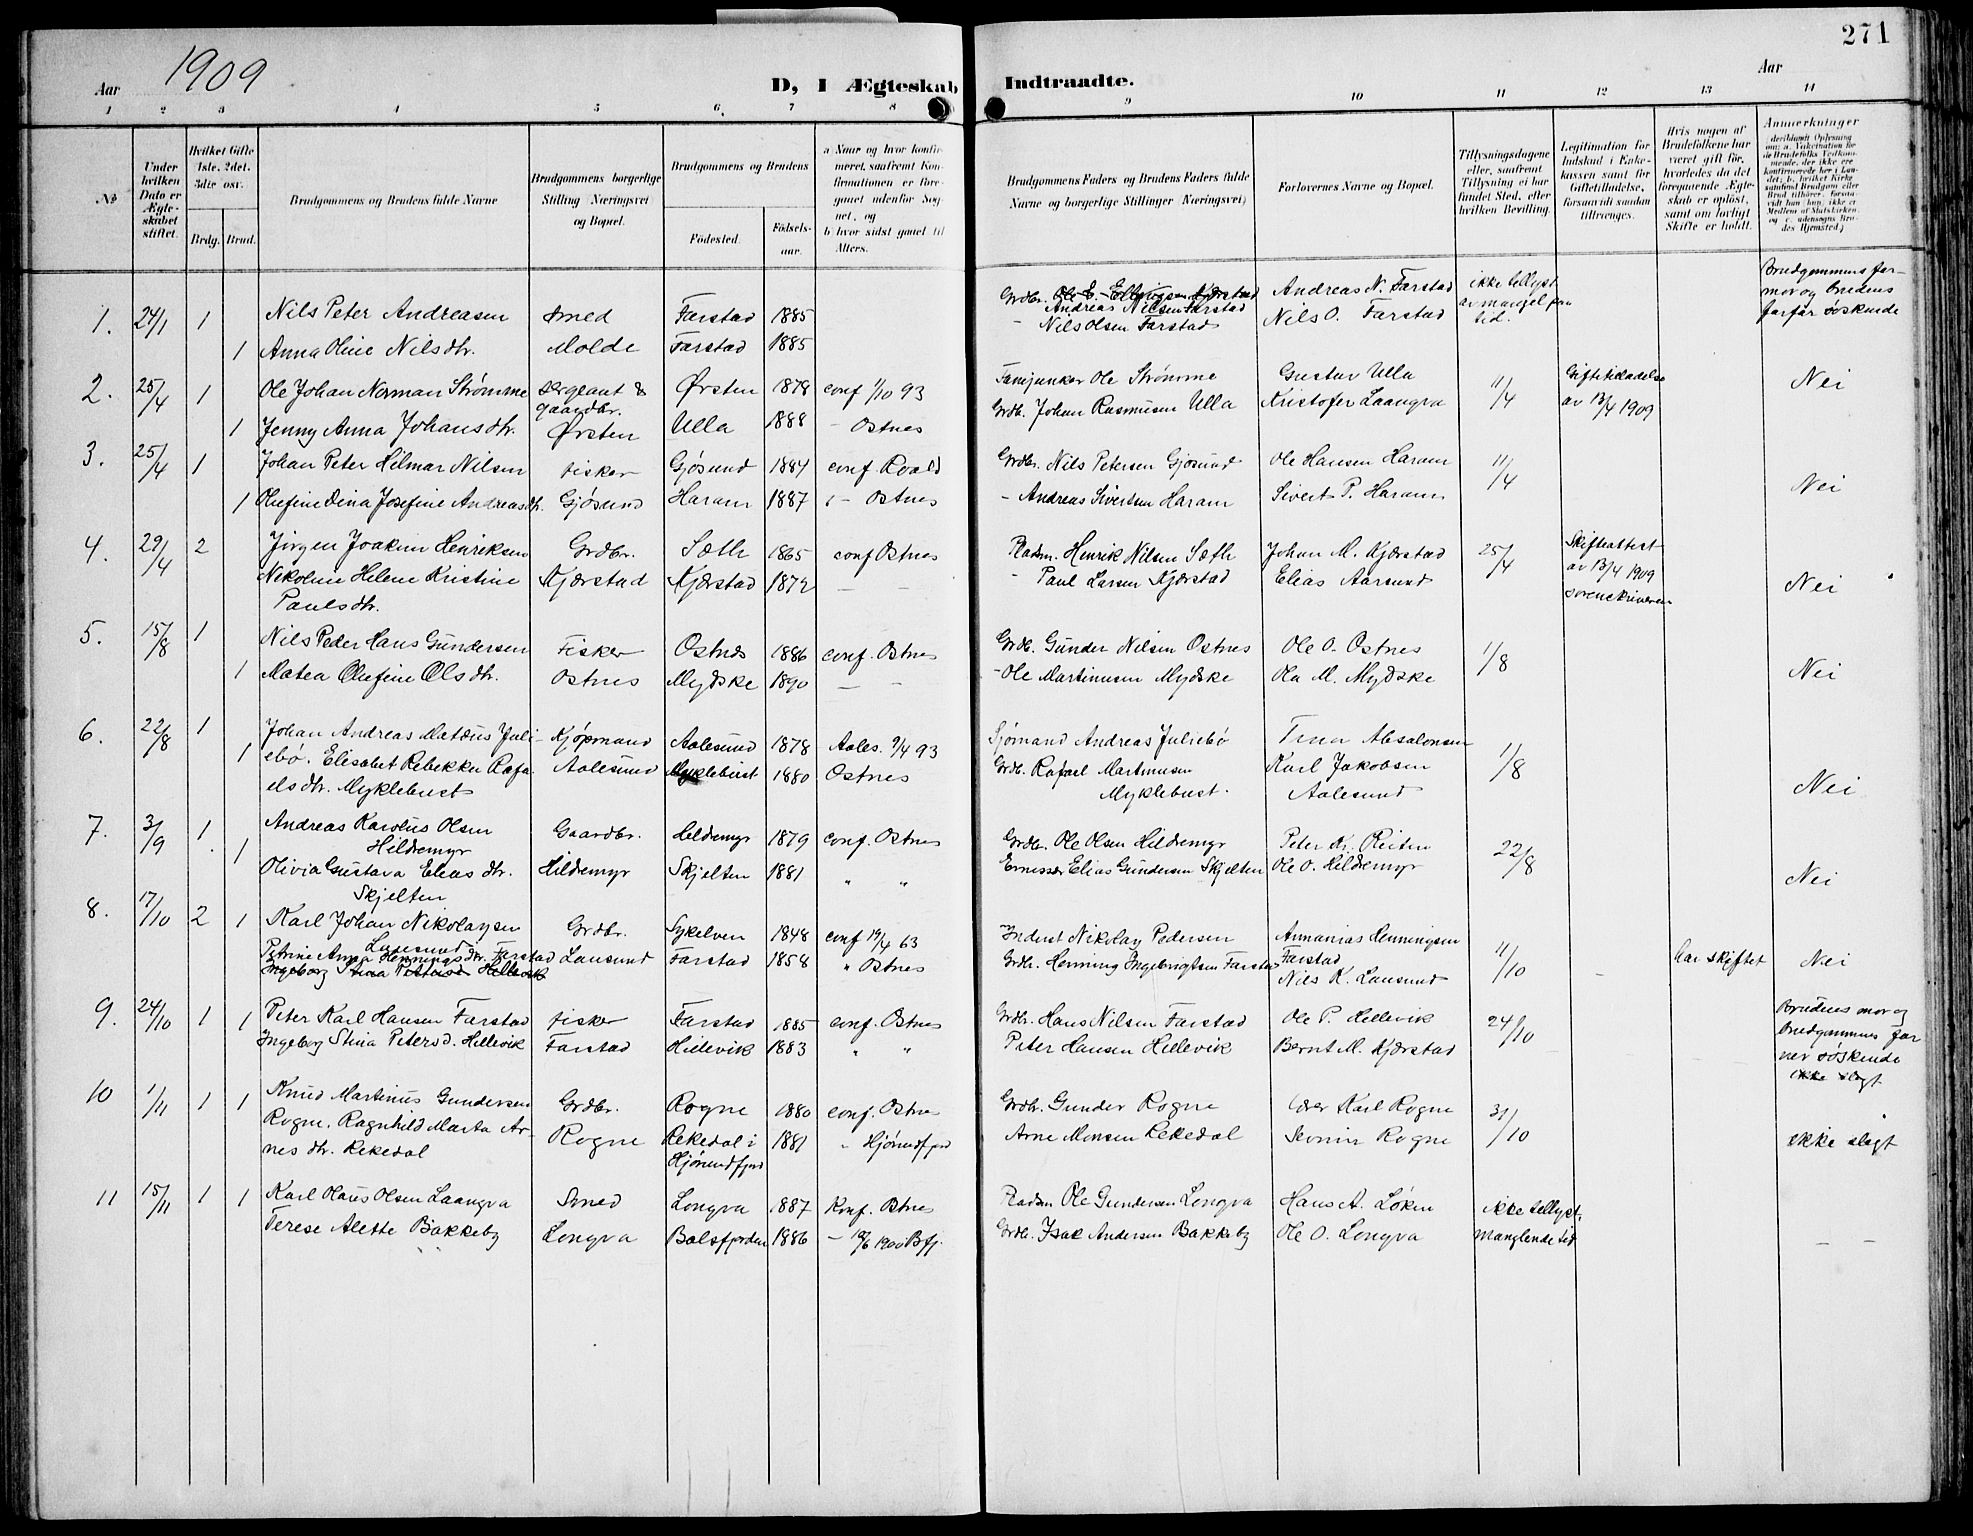 1909
271
Aar
D, I Ægteskab
Indtraadte.
Aar
1 2 3 4 5 6. 7 8 9 10 11 12 13 14
No
Under hvilken Dato er Ægteskabet stiftet.
Hvilket Gifte 1ste, 2det, 3die osv.
Brdg. Brud.
Brudgommens og Brudens fulde Navne
Brudgommens borgerlige Stilling Næringsvei og Bopæl.
Brudgommens og Brudens
Födested.
Födsels-aar.
a Naar og hvor konfirmeret, saafremt Konfirmationen er foregaaet udenfor Sognet, og
b hvor sidst gaaet til Alters.
Brudgommens Faders og Brudens Faders fulde Navne og borgerlige Stillinger Næringsvei)
Forlovernes Navne og Bopæl.
Tillysningsdagene eller, saafremt Tillysning ei har fundet Sted, efter hvilken Bevilling.
Legitimation for Indskud i Enkekassen samt for Giftetilladelse, forsaavidt saadan tiltrænges.
Hvis nogen af Brudefolkene har været gift för, hvorledes da det foregaaende Ægteskab er oplöst, samt om lovligt Skifte er holdt.
Anmerkninger
1. 24/1 1 Nils Peter Andreasen Smed Farstad 1885
Grdbr. Ole E. Ellingsen Kjærstad
Andreas Nilsen Farstad
Andreas N. Farstad
ikke tillyst av mangel paa tid.
Brudgommens farmor og brudens farfar søskende
1 Anna Oline Nilsdtr. Molde Farstad 1885
- Nils Olsen Farstad Nils O. Farstad
2. 25/4 1 Ole Johan Norman Strømme sergeant & gaardbr. Ørsten 1878 conf 1/10 93
Fanejunker Ole Strømme Gustav Ulla 11/4 Giftetilladelse av 13/4 1909 Nei
1 Jenny Anna Johansdtr. Ørsten Ulla 1888 - Ostnes
Grdb. Johan Rasmusen Ulla Kristofer Laangva
3. 25/4 1 Johan Peter Hilmar Nilsen fisker Gjøsund 1884 conf Roald
Grdbr. Nils Petersen Gjøsund Ole Hansen Haram 11/4 Nei
1 Olufine Dina Josefine Andreasdtr. Gjøsund Haram 1887 - Ostnes
- Andreas Sivertsen Haram Sivert P. Haram
4. 29/4 2 Jörgen Joakim Henriksen Grdbr. Sæth 1865 conf Ostnes
Pladsm. Henrik Nilsen Sæth Johan M. Kjærstad 25/4 Skifteattest av 13/4 1909 sorenskriveren Nei
Nikoline Helene Kristine Kjærstad Kjærstad 1872 - -
Paulsdtr.
- Paul Larsen Kjærstad Elias Aarsund
5. 15/8 1 Nils Peder Hans Gundersen Fisker Ostnes 1886 conf. Ostnes
Grdb. Gunder Nilsen Ostnes Ole O. Ostnes 1/8 Nei
1 Matea Olufine Olsdtr. Ostnes Mydske 1890 - -
- Ole Martinusen Mydske Ola M. Mydske
6. 22/8 1 Johan Andreas Matæus Juli- Kjøpmand Aalesund 1878 Aales. 9/4 93
Sjømand Andreas Juliebø Trna Absalonsen 1/8 Nei
1 ebø. Elisabet Rebekka Rafa- Aalesund Myklebust 1880 Ostnes
elsdtr. Myklebust
Grdb. Rafael Martinusen Myklebust. Karl Jakobsen Aalesund
7. 3/9 1 1 Andreas Karolus Olsen Hildremyr Gaardbr. Hildremyr 1879 conf. Ostnes
Grdbr. Ole Olsen Hildremyr Peter Kr. Reiten 22/8 Nei
Olivia Gustava Eliasdtr. Skjelten Hildremyr Skjelten 1881 " "
Elias Gundersen Skjelten Ole O. Hildremyr
8. 17/10 2 1 Karl Johan Nikolaysen Lausund Grdbr. Sykelven 1848 conf 19/4 63
Inderst Nikolay Pedersen Annanias Henningsen Farstad 11/10 - har skiftet Nei
Petrine Anna Henningsdtr. Farstad Lausund Farstad 1858 " Ostnes
Ingeborg Stina Petersd. Hellevik
Grdb. Henning Ingebrigtsen Farstad Nils K. Lausund
9. 24/10 1 1 Peter Karl Hansen Farstad fisker Farstad 1885 conf. Ostnes
Grdbr. Hans Nilsen Farstad Ole P. Hellevik 24/10
Brudens mor og brudgommens far ner søskende
Ingeborg Stina Petersd. Hellevik Farstad Hellevik 1883 " "
Peter Hansen Hellevik Bernt M. Kjærstad
ikke slegt
10 1/11 1 1 Knud Martinus Gundersen Grdbr. Rogne 1880 conf. Ostnes
Grdbr. Gunder Rogne Karl Rogne 31/10 ikke slegt
Rogne. Ragnhild Marta Ar- Rogne Rekedal i Hjørundfjord 1881 " Hjørundfjord
nesdtr. Rekedal
Arne Monsen Rekedal Sevrin Rogne
11 15/11 1 1 Karl Olaus Olsen Laangva Smed Longva 1887 Konf. Ostnes
Pladsm Ole Gundersen Longva Hans A. Løken ikke tillyst,
Terese Alette Bakkeby Longva Balsfjorden 1886 - 10/6 1900 Bfj.
Grdb. Isak Andersen Bakkeby Ole O. Longva manglende tid - -